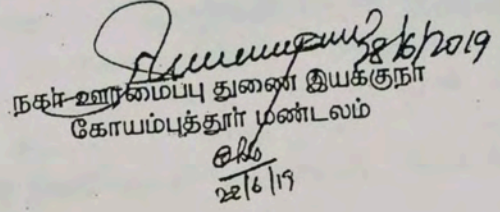 28/6/2019
நகர் ஊரமைப்பு துணை இயக்குநர்
கோயம்புத்தூர் மண்டலம்
22/6/19